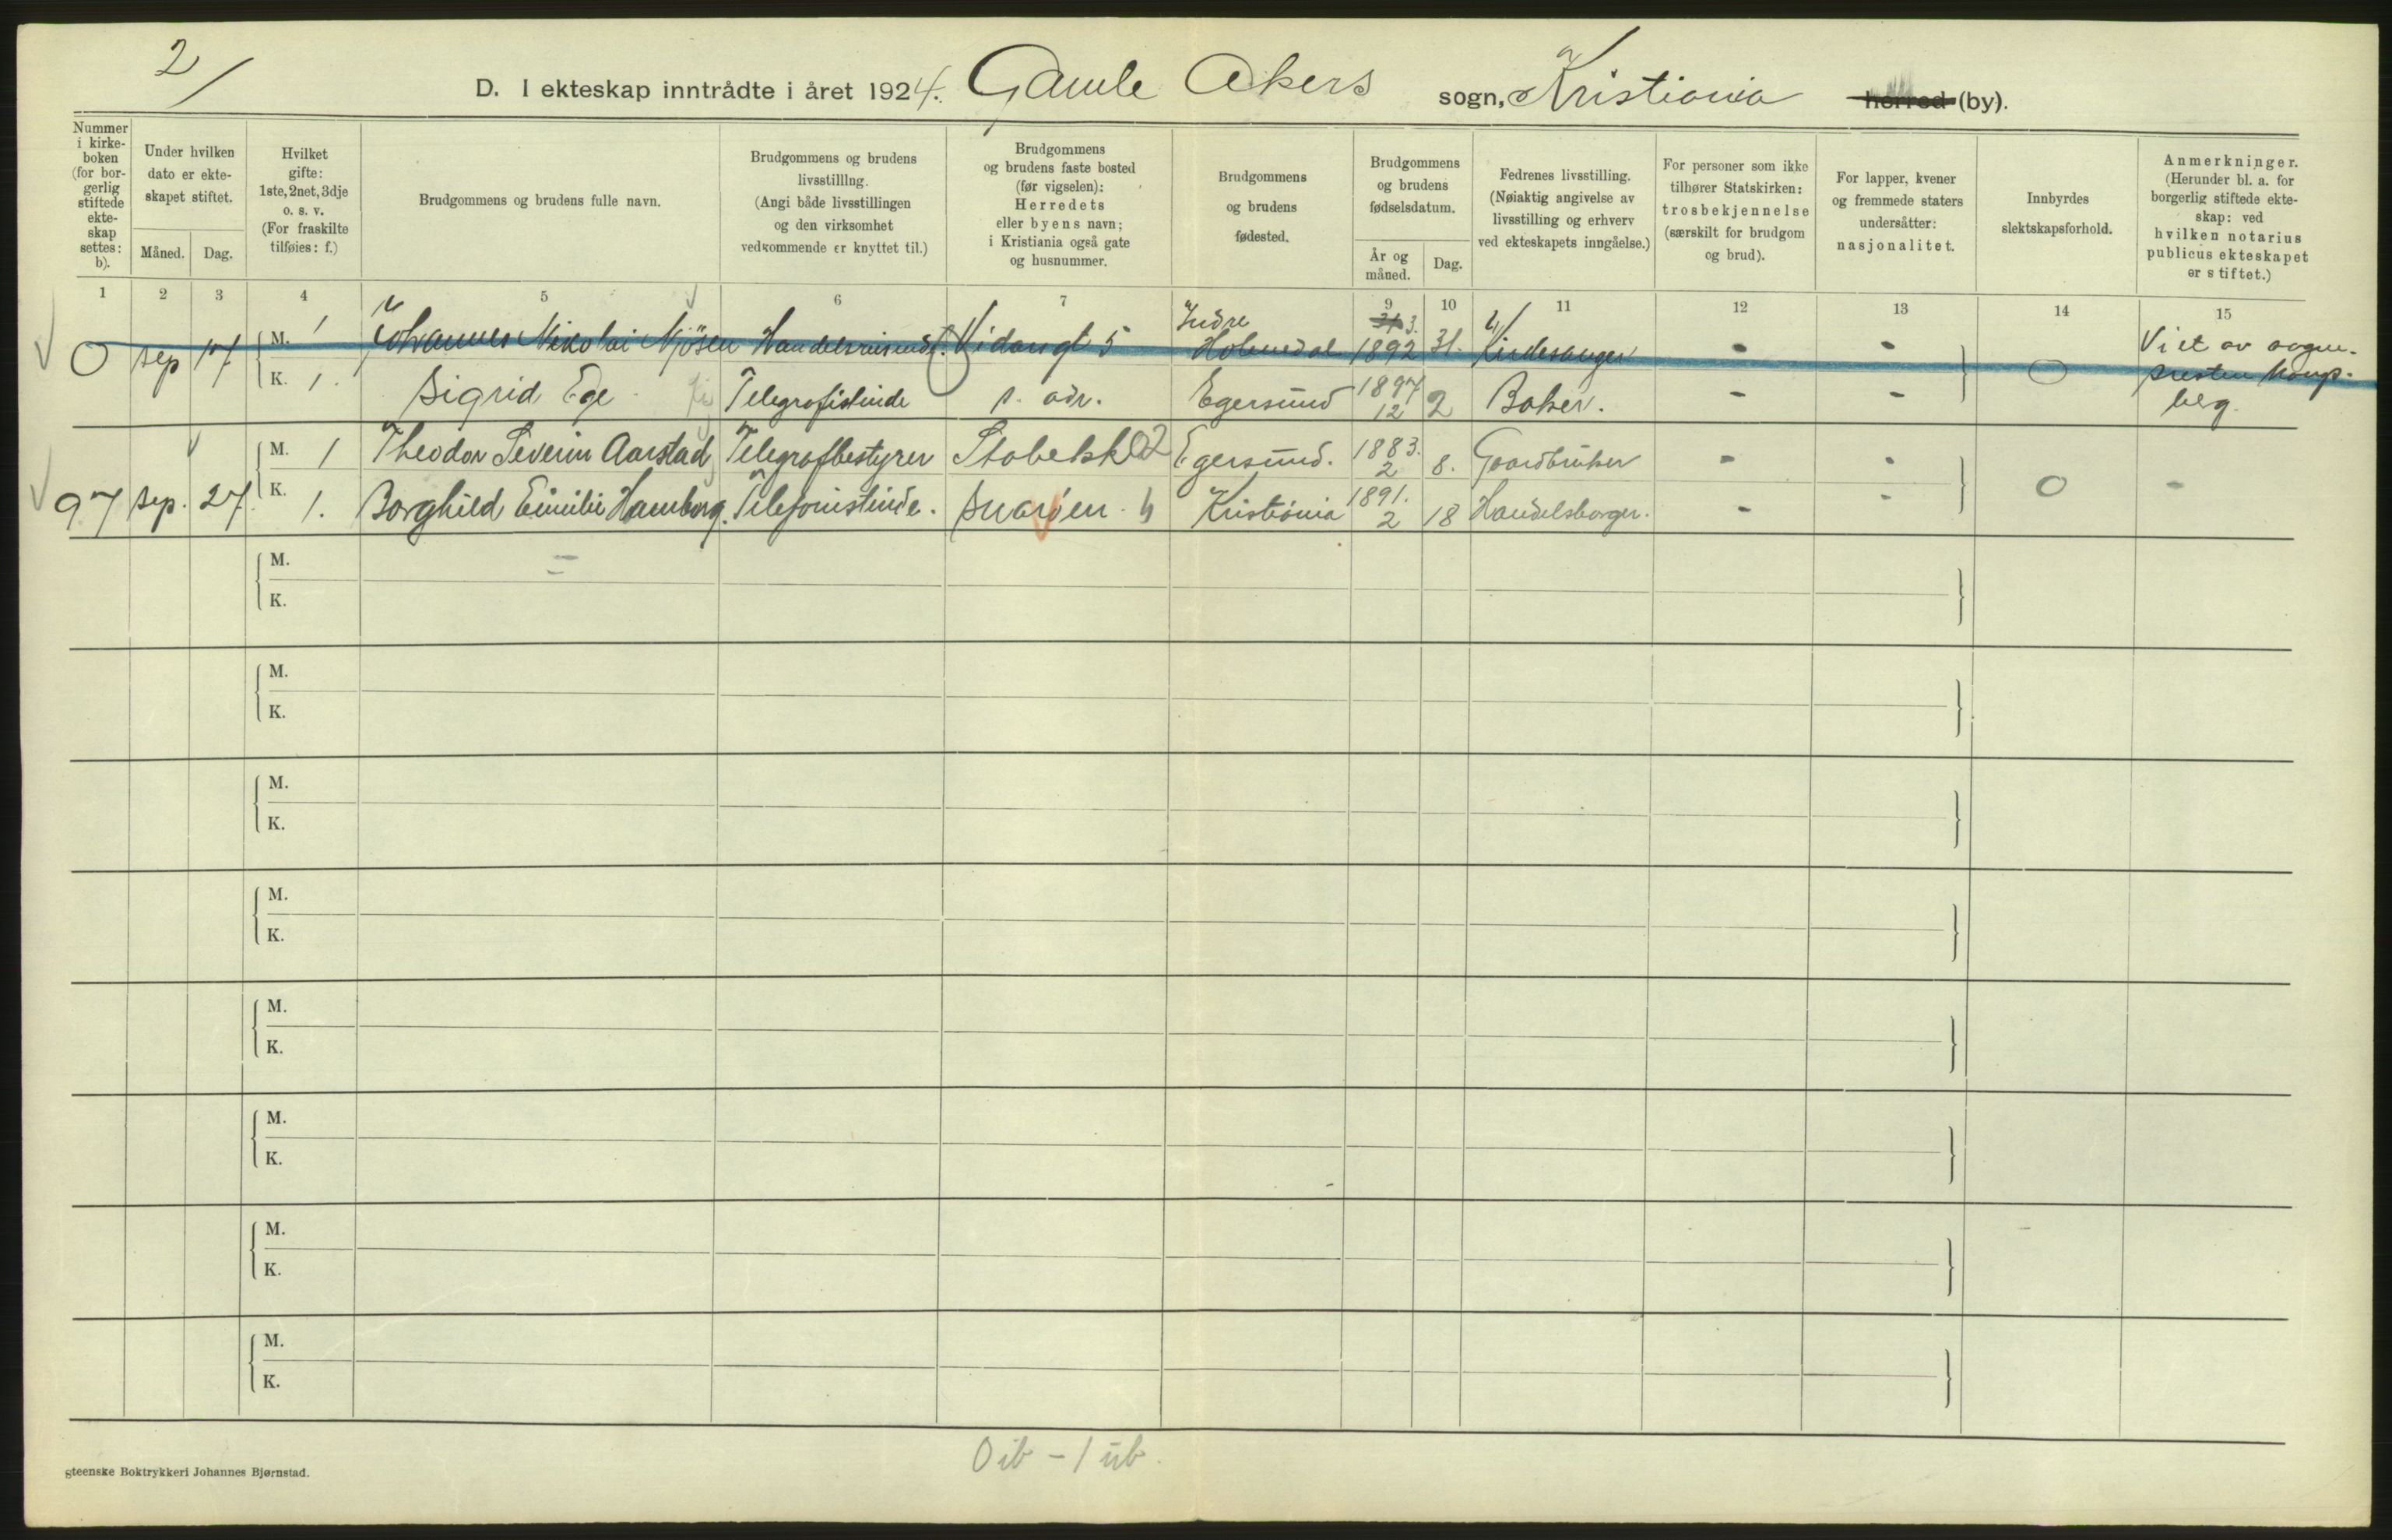 2/
D. I ekteskap inntrådte i året 1924. Gamle Akers sogn, Kristiania herred (by).
Nummer i kirke-boken (for bor-gerlig stiftede ekte-skap settes: b).
Under hvilken dato er ekte-skapet stiftet.
Måned. Dag.
Hvilket gifte: 1ste, 2net, 3dje o. s. v. (For fraskilte tilføies: f.)
Brudgommens og brudens fulle navn.
Brudgommens og brudens livsstilling. (Angi både livsstillingen og den virksomhet vedkommende er knyttet til.)
Brudgommens og brudens faste bosted (før vigselen): Herredets eller byens navn; i Kristiania også gate og husnummer.
Brudgommens og brudens fødested.
Brudgommens og brudens fødselsdatum.
År og måned. Dag.
Fedrenes livsstilling. (Nøiaktig angivelse av livsstilling og erhverv ved ekteskapets inngåelse.)
For personer som ikke tilhører Statskirken: trosbekjennelse (særskilt for brudgom og brud).
For lapper, kvener og fremmede staters undersåtter: nasjonalitet.
Innbyrdes slektskapsforhold.
Anmerkninger. (Herunder bl. a. for borgerlig stiftede ekte-skap: ved hvilken notarius publicus ekteskapet er stiftet.)
1 2 3 4 5 6 7 9 10 11 12 13 14 15
0 sep 17 M. 1 Johannes Nikolai Mjösen Handelsreisende Vidarsgt 5 Indre Holmedal 3. 1892 31. - - 0 Viet av sogne-presten Kongs-berg.
K. 1. Sigrid Ege Telegrafistinde s. adr. Egersund 1897 12 2 Baker. - -
97 sep. 27. M. 1 Theodor Severin Aarstad Telegrafbestyrer Egersund. 1883. 2 8. Gaardbruker - - 0 -
K. 1. Borghild Emilie Hamborg. Telefonistinde. Snarøen. Kristiania 1891. 2 18 Handelsborger. - -
M.
K.
M.
K.
M.
K.
M.
K.
M.
K.
M.
K.
M.
K.
M.
K.
0 ib - 1 ub.
steenske Boktrykkeri Johannes Bjørnstad.